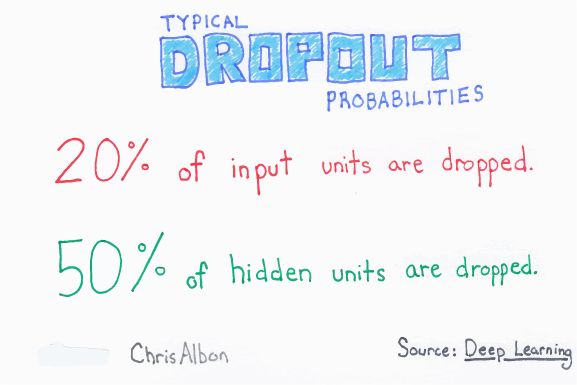 TYPICAL
DROPOUT
PROBABILITIES
20% of input units are dropped.
50% of hidden units are dropped.
Chris Albon
Source: Deep Learning